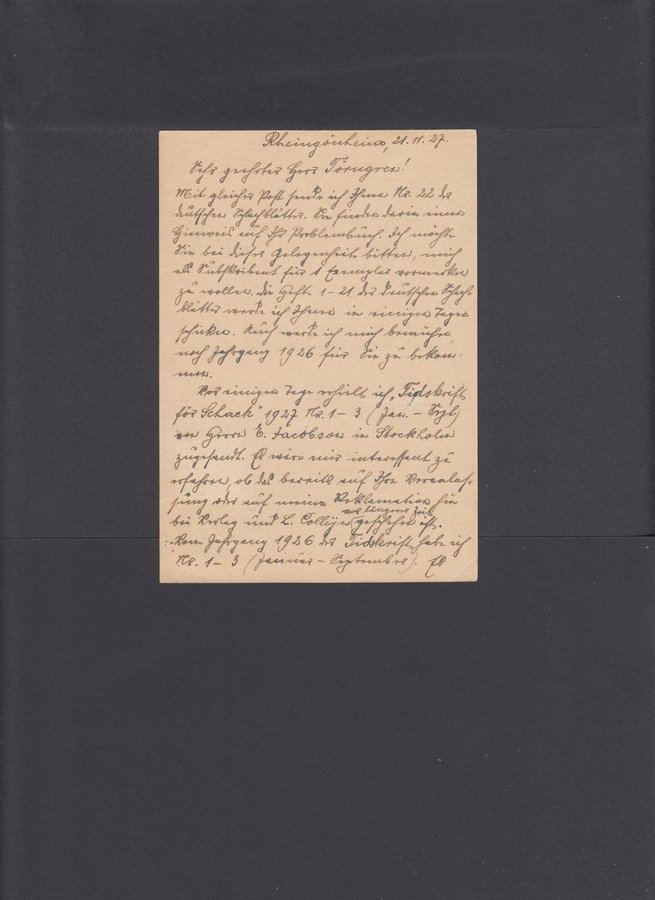 Rheingönheim, 21.11.27.
Sehr geehrter Herr Törngren!
Mit gleicher Post sende ich Ihnen Nr. 22 der
deutschen Schachblätter. Sie finden darin einen
Hinweis auf Ihr Problembuch. Ich möchte
Sie bei dieser Gelegenheit bitten, mich
als Subskribent für 1 Exemplar vormerken
zu wollen. Die Hefte 1-21 der deutschen Schach-
blätter werde ich Ihnen in einigen Tagen
schicken. Auch werde ich mich bemühen,
noch Jahrgang 1926 für Sie zu bekom-
men.
Vor einigen Tage erhielt ich „Tidskrift
för Schack" 1927 Nr. 1-3 (Jan. - Sept)
von Herrn E. Jacobson in Stockholm
zugesandt. Es wäre mir interessant zu
erfahren, ob das bereits auf Ihre Veranlas-
sung oder auf meine Reklamation hin
bei Verlag und L. Collijn vor längerer Zeit geschehen ist.
Vom Jahrgang 1926 der Tidskrift habe ich
Nr. 1-3 (Januar - September). Es